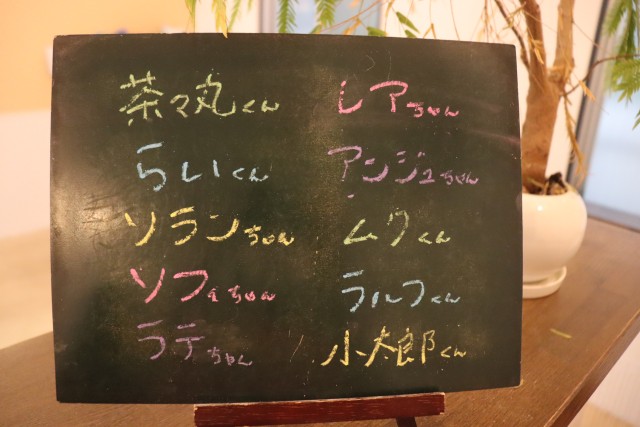 茶々丸くん
らいくん
ソランちゃん
ソフィちゃん
ラテちゃん
レアちゃん
アンジュちゃん
ムクくん
ラルフくん
小太郎くん